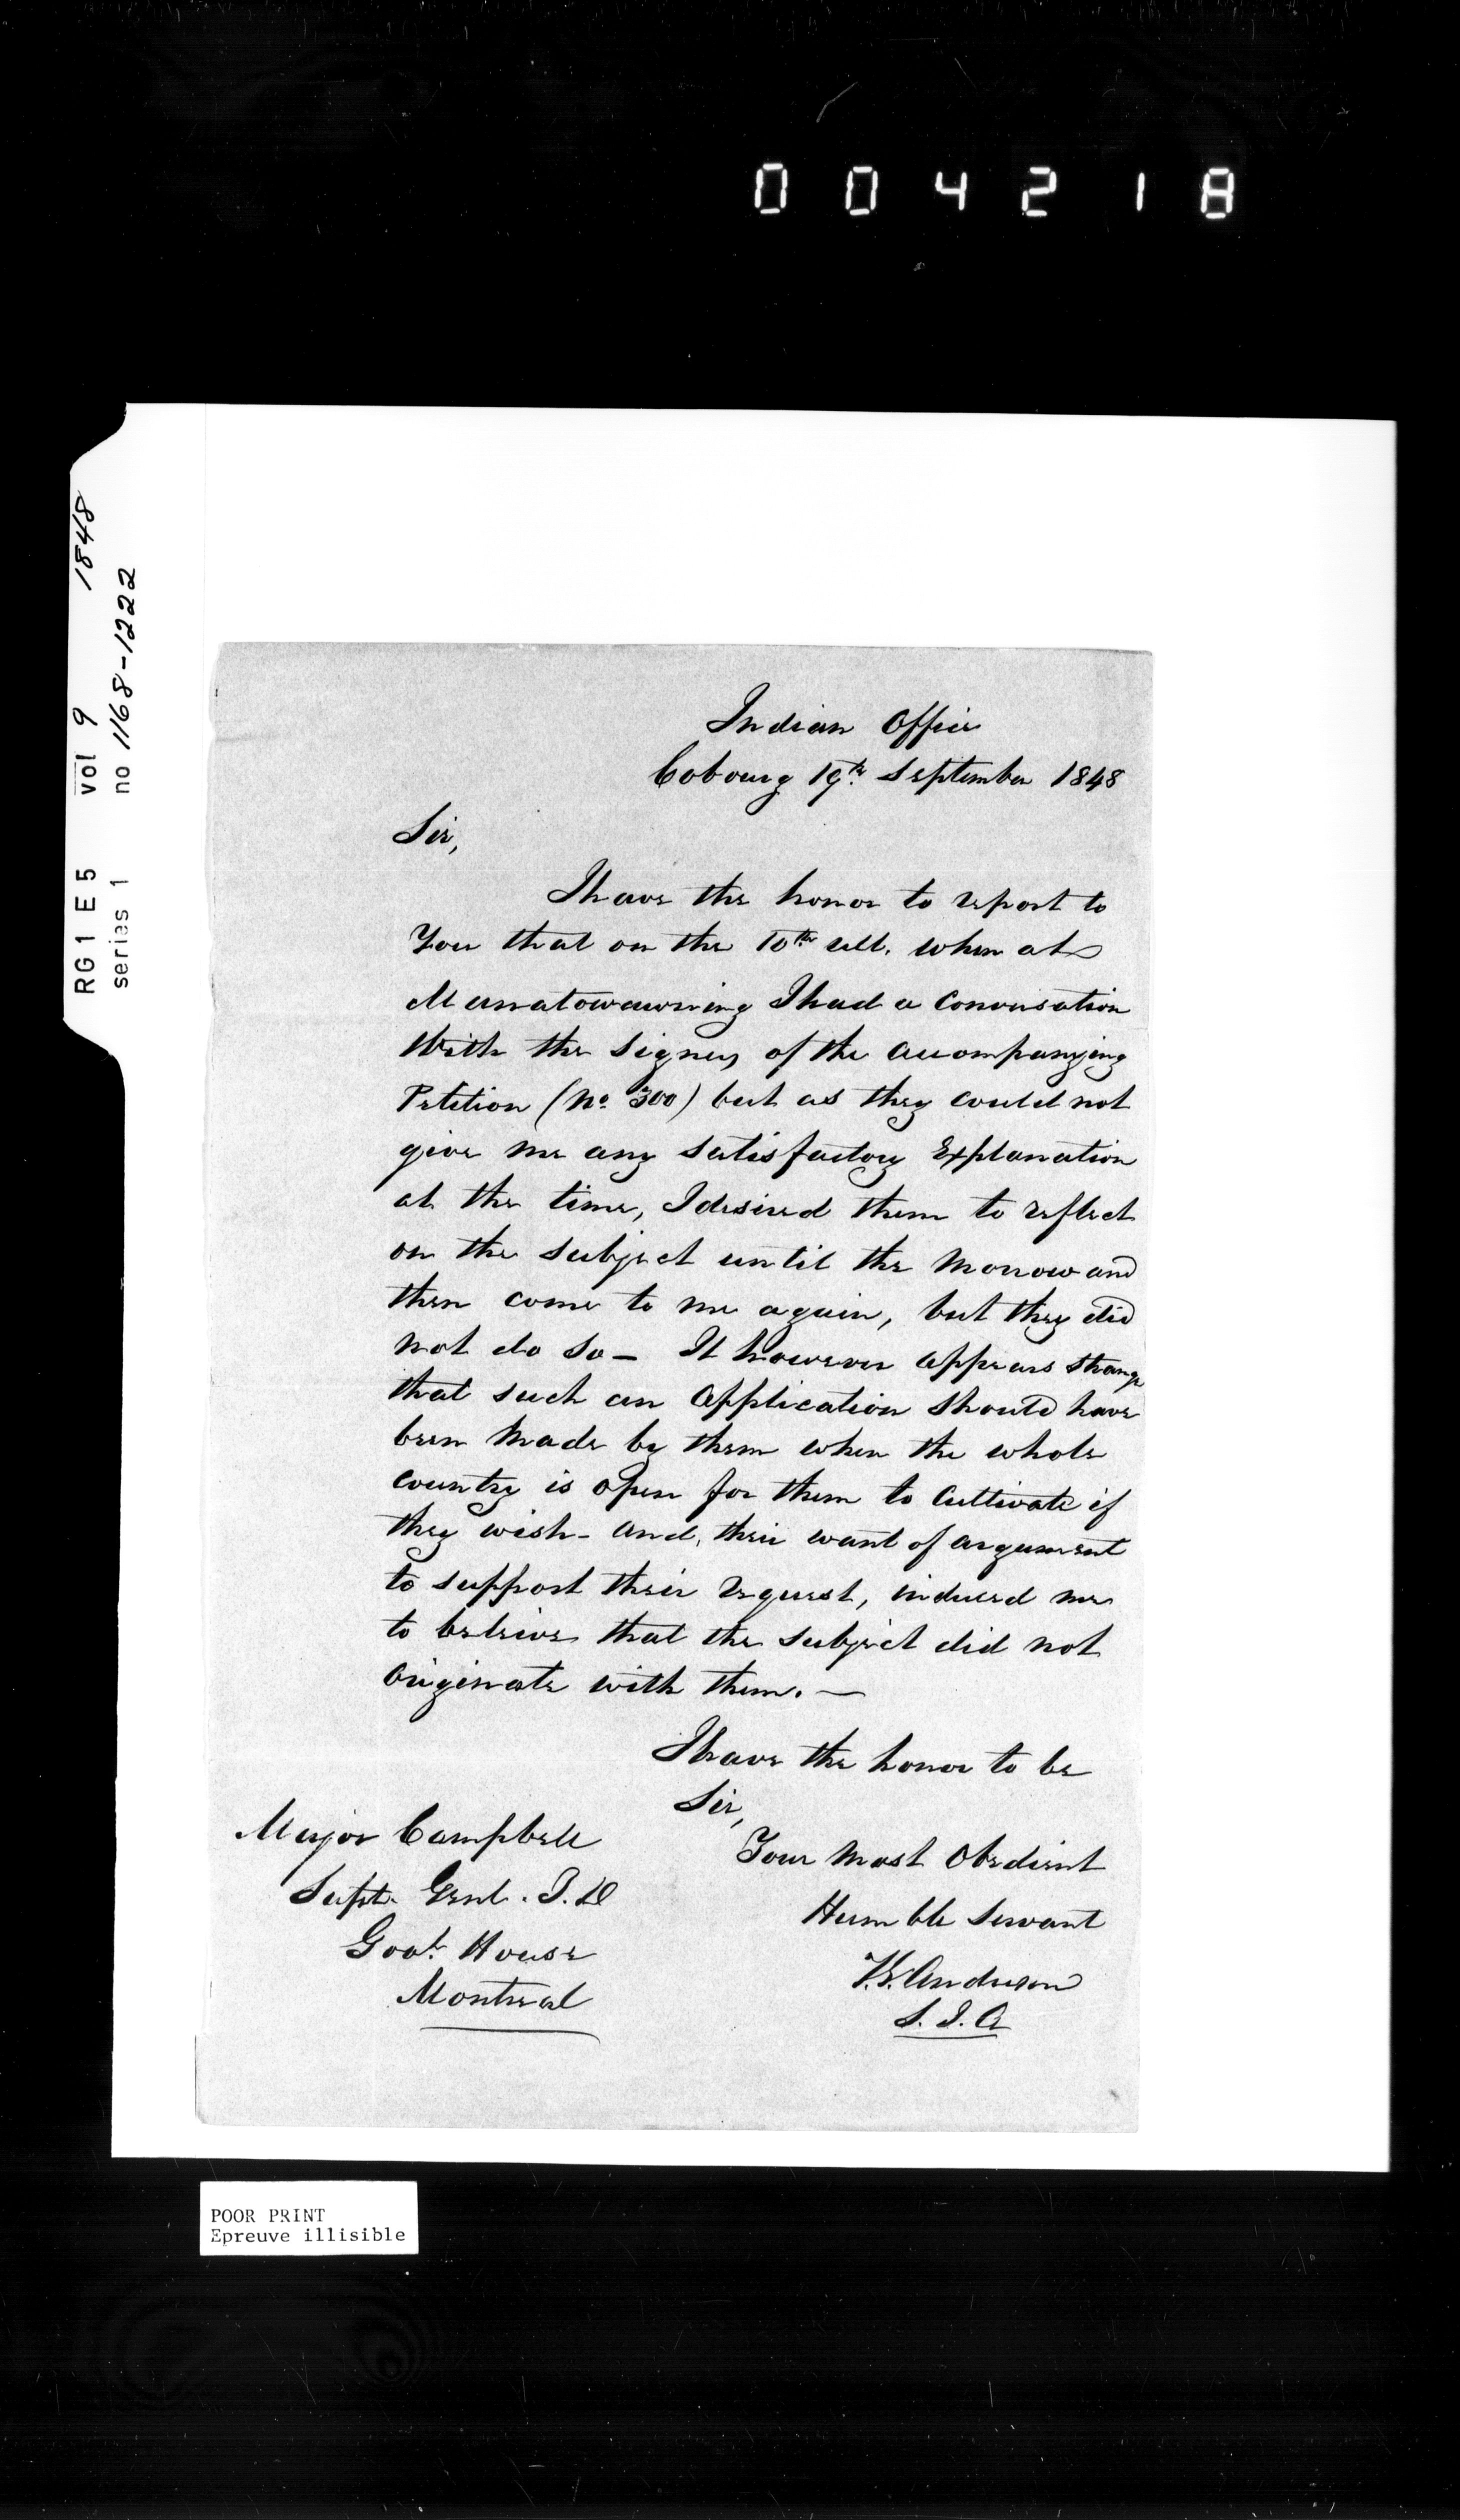 004218
RG1 E5 vol 9 1848
series 1 no 1168-1222
Indian Office
Cobourg 19th September 1848
Sir,
I have the honor to report to
You that on the 10th ult. when at
Manatowawning I had a Conversation
With the Signers of the accompanying
Petition (No 300) but as they could not
give me any satisfactory Explanation
at the time, I desired them to reflect
on the subject until the Morrow and
then come to me again, but they did
not do so — It however appears strange
that such an Application should have
been Made by them when the whole
country is open for them to Cultivate if
they wish - and, their want of argument
to support their request, induced me
to believe that the subject did not
Originate with them. —
I have the honor to be
Sir,
Your Most Obedient
Humble Servant
T.G. Anderson
S. I. A
Major Campbell
Supt. Genl. I. D
Govt. House
Montreal
POOR PRINT
Epreuve illisible